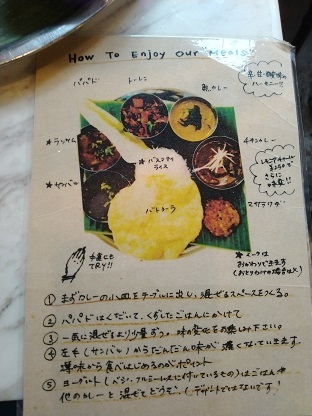 How To Enjoy Our Meals
パパド
トーレン
豆カレー
辛・甘・酸味の
ハーモニー!!
ラッサム
★バスマティ
ライス
チキンカレー
★サンバル
バトゥーラ
マサラワダ
レモンアチャールを
さらに
手食にも
TRY!!
★マークは
おかわりできます
(おとりわけの場合は×)
① まずカレーの小皿をテーブルに出し、混ぜるスペースをつくる。
② パパドはくだいて、くずしたごはんにかけて
③ 一気に混ぜるより少量ずつ。味の変化をお楽しみ下さい。
④ 左手(サンバル)からだんだん味が濃くなっていきます。
薄味から食べはじめるのがポイント
⑤ ヨーグルト(ベジ・フルミールスに付いているもの)はごはんや
他のカレーと混ぜてどうぞ。(デザートではないです!)